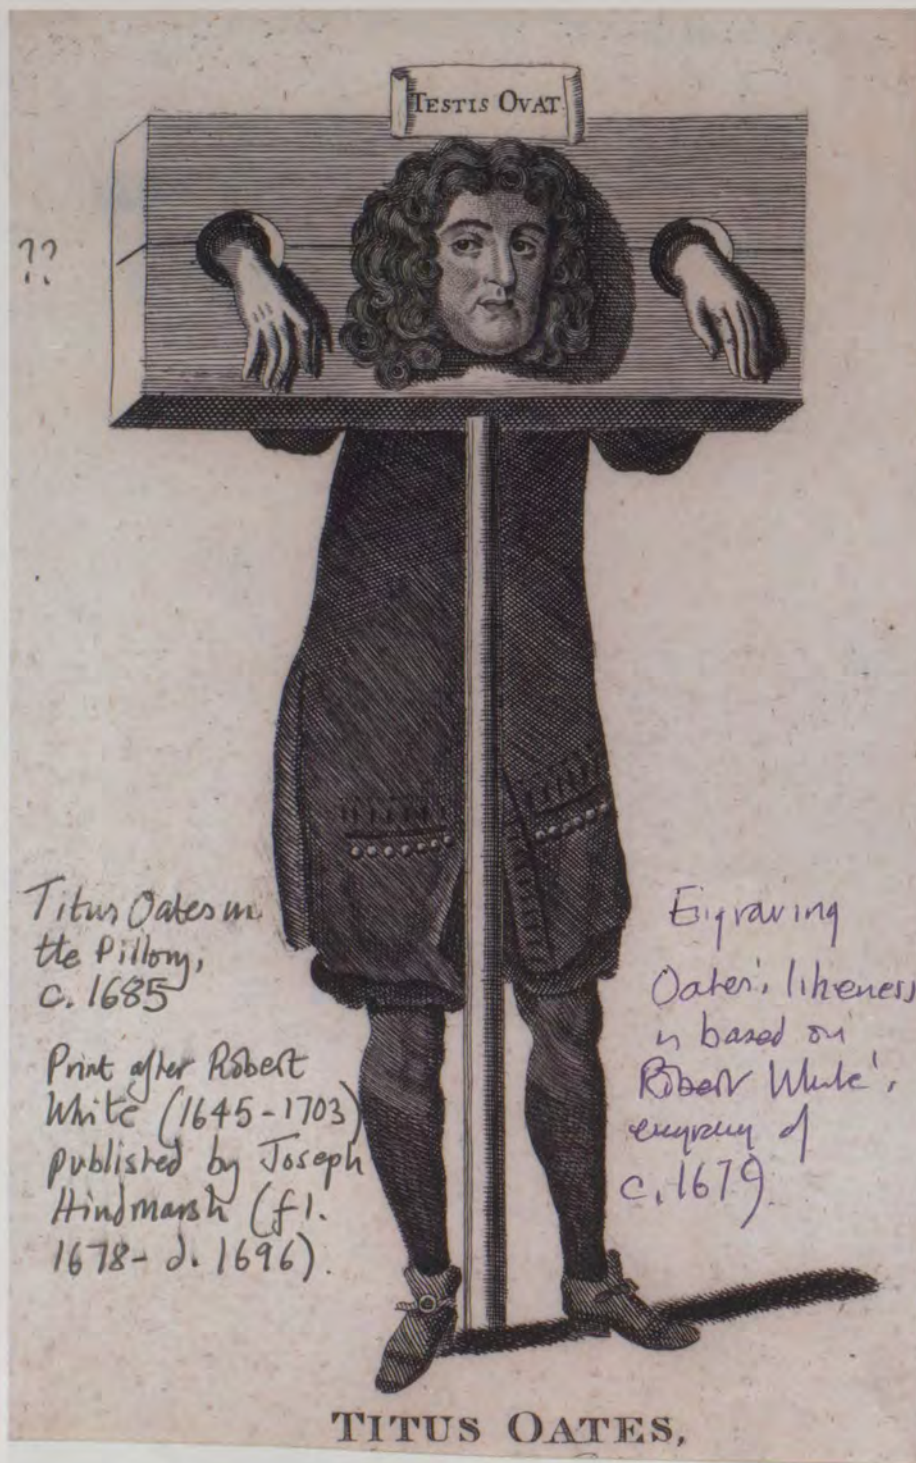 TESTIS OVAT
??
Titus Oates in
the Pillory,
c. 1685
Print after Robert
White (1645-1703)
published by Joseph
Hindmarsh (fl.
1678- d. 1696).
Engraving
Oates's likeness
is based on
Robert White's
engraving of
c. 1679.
TITUS OATES,